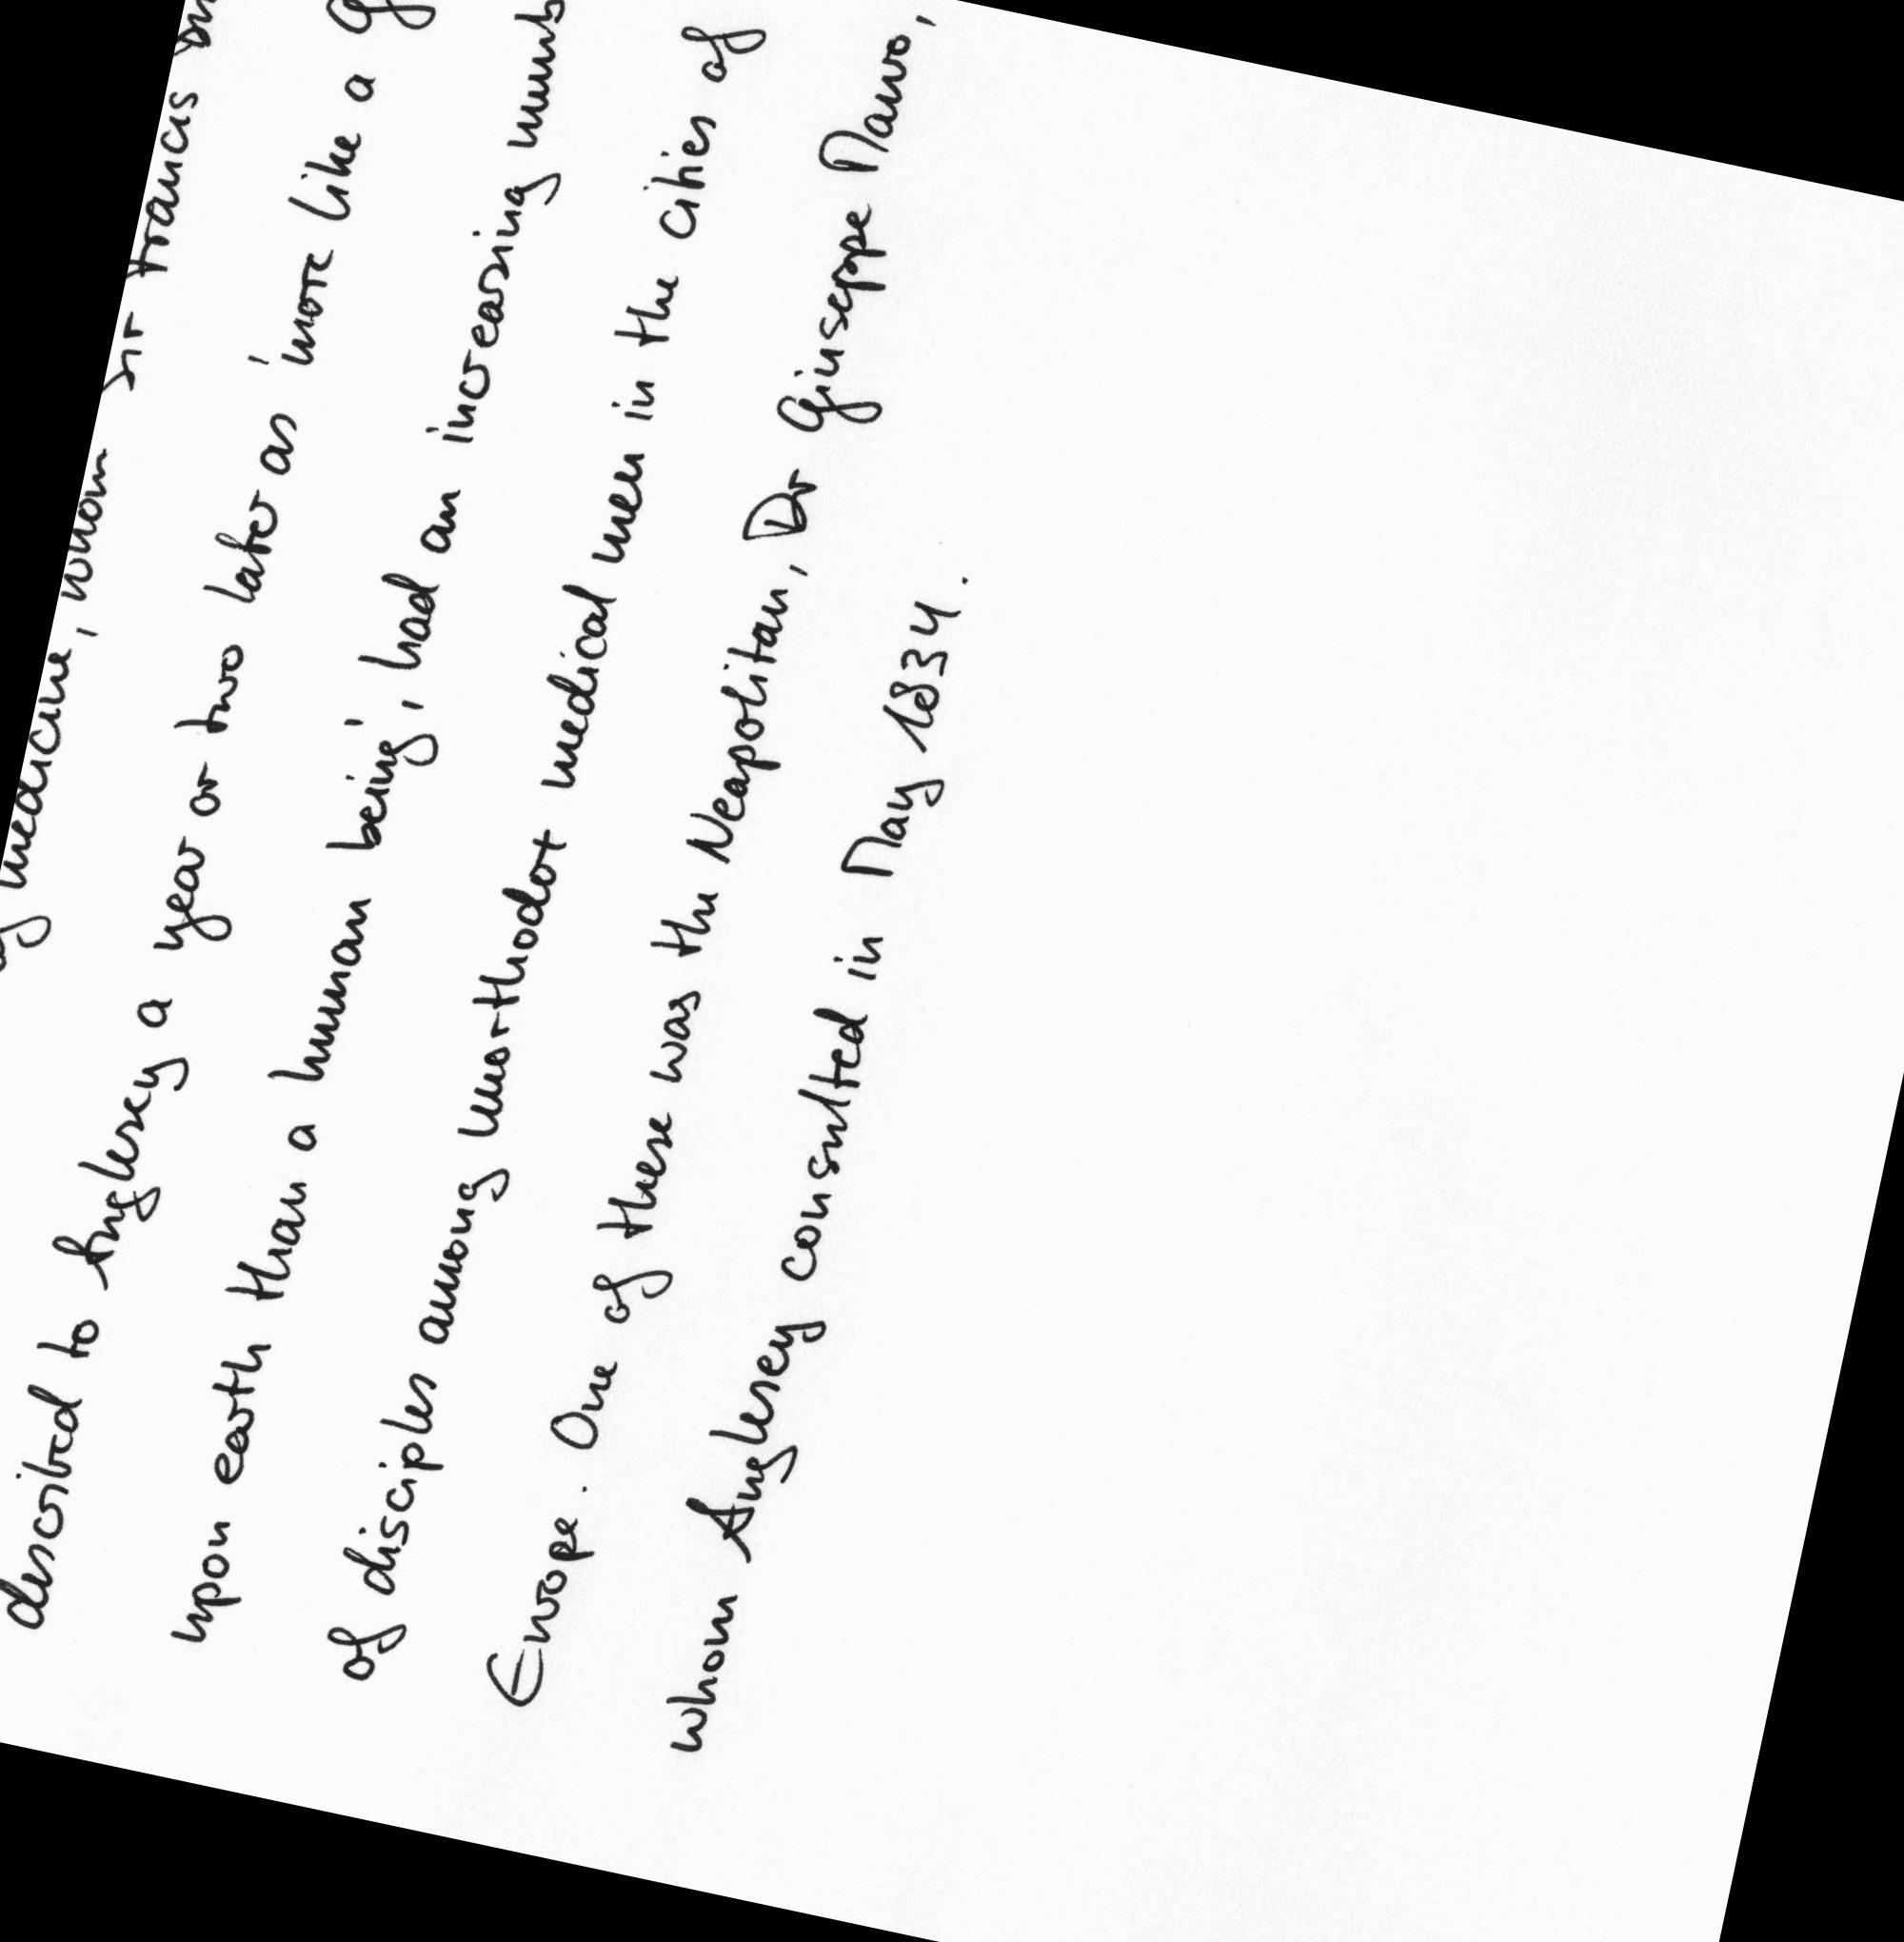 medicine, whom Sir Francis
described to Anglesey a year or two later as 'more like a
upon earth than a human being', had an increasing numb
of disciples among unorthodox medical men in the cities of
Europe. One of these was the Neapolitan, Dr Giuseppe Mauro,
whom Anglesey consulted in May 1834.